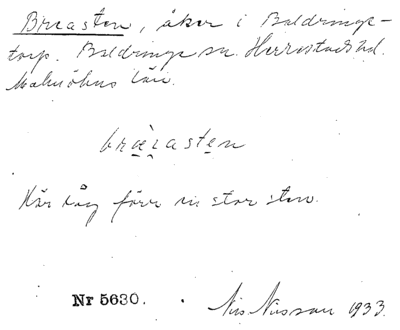 Breasten, åker i Baldrings-
torp. Baldringe sn. Herrestads hd.
Malmöhus län.
bræ̀i̯asten
Här låg förr en stor sten.
Nr 5630. Nils Nilsson 1933.